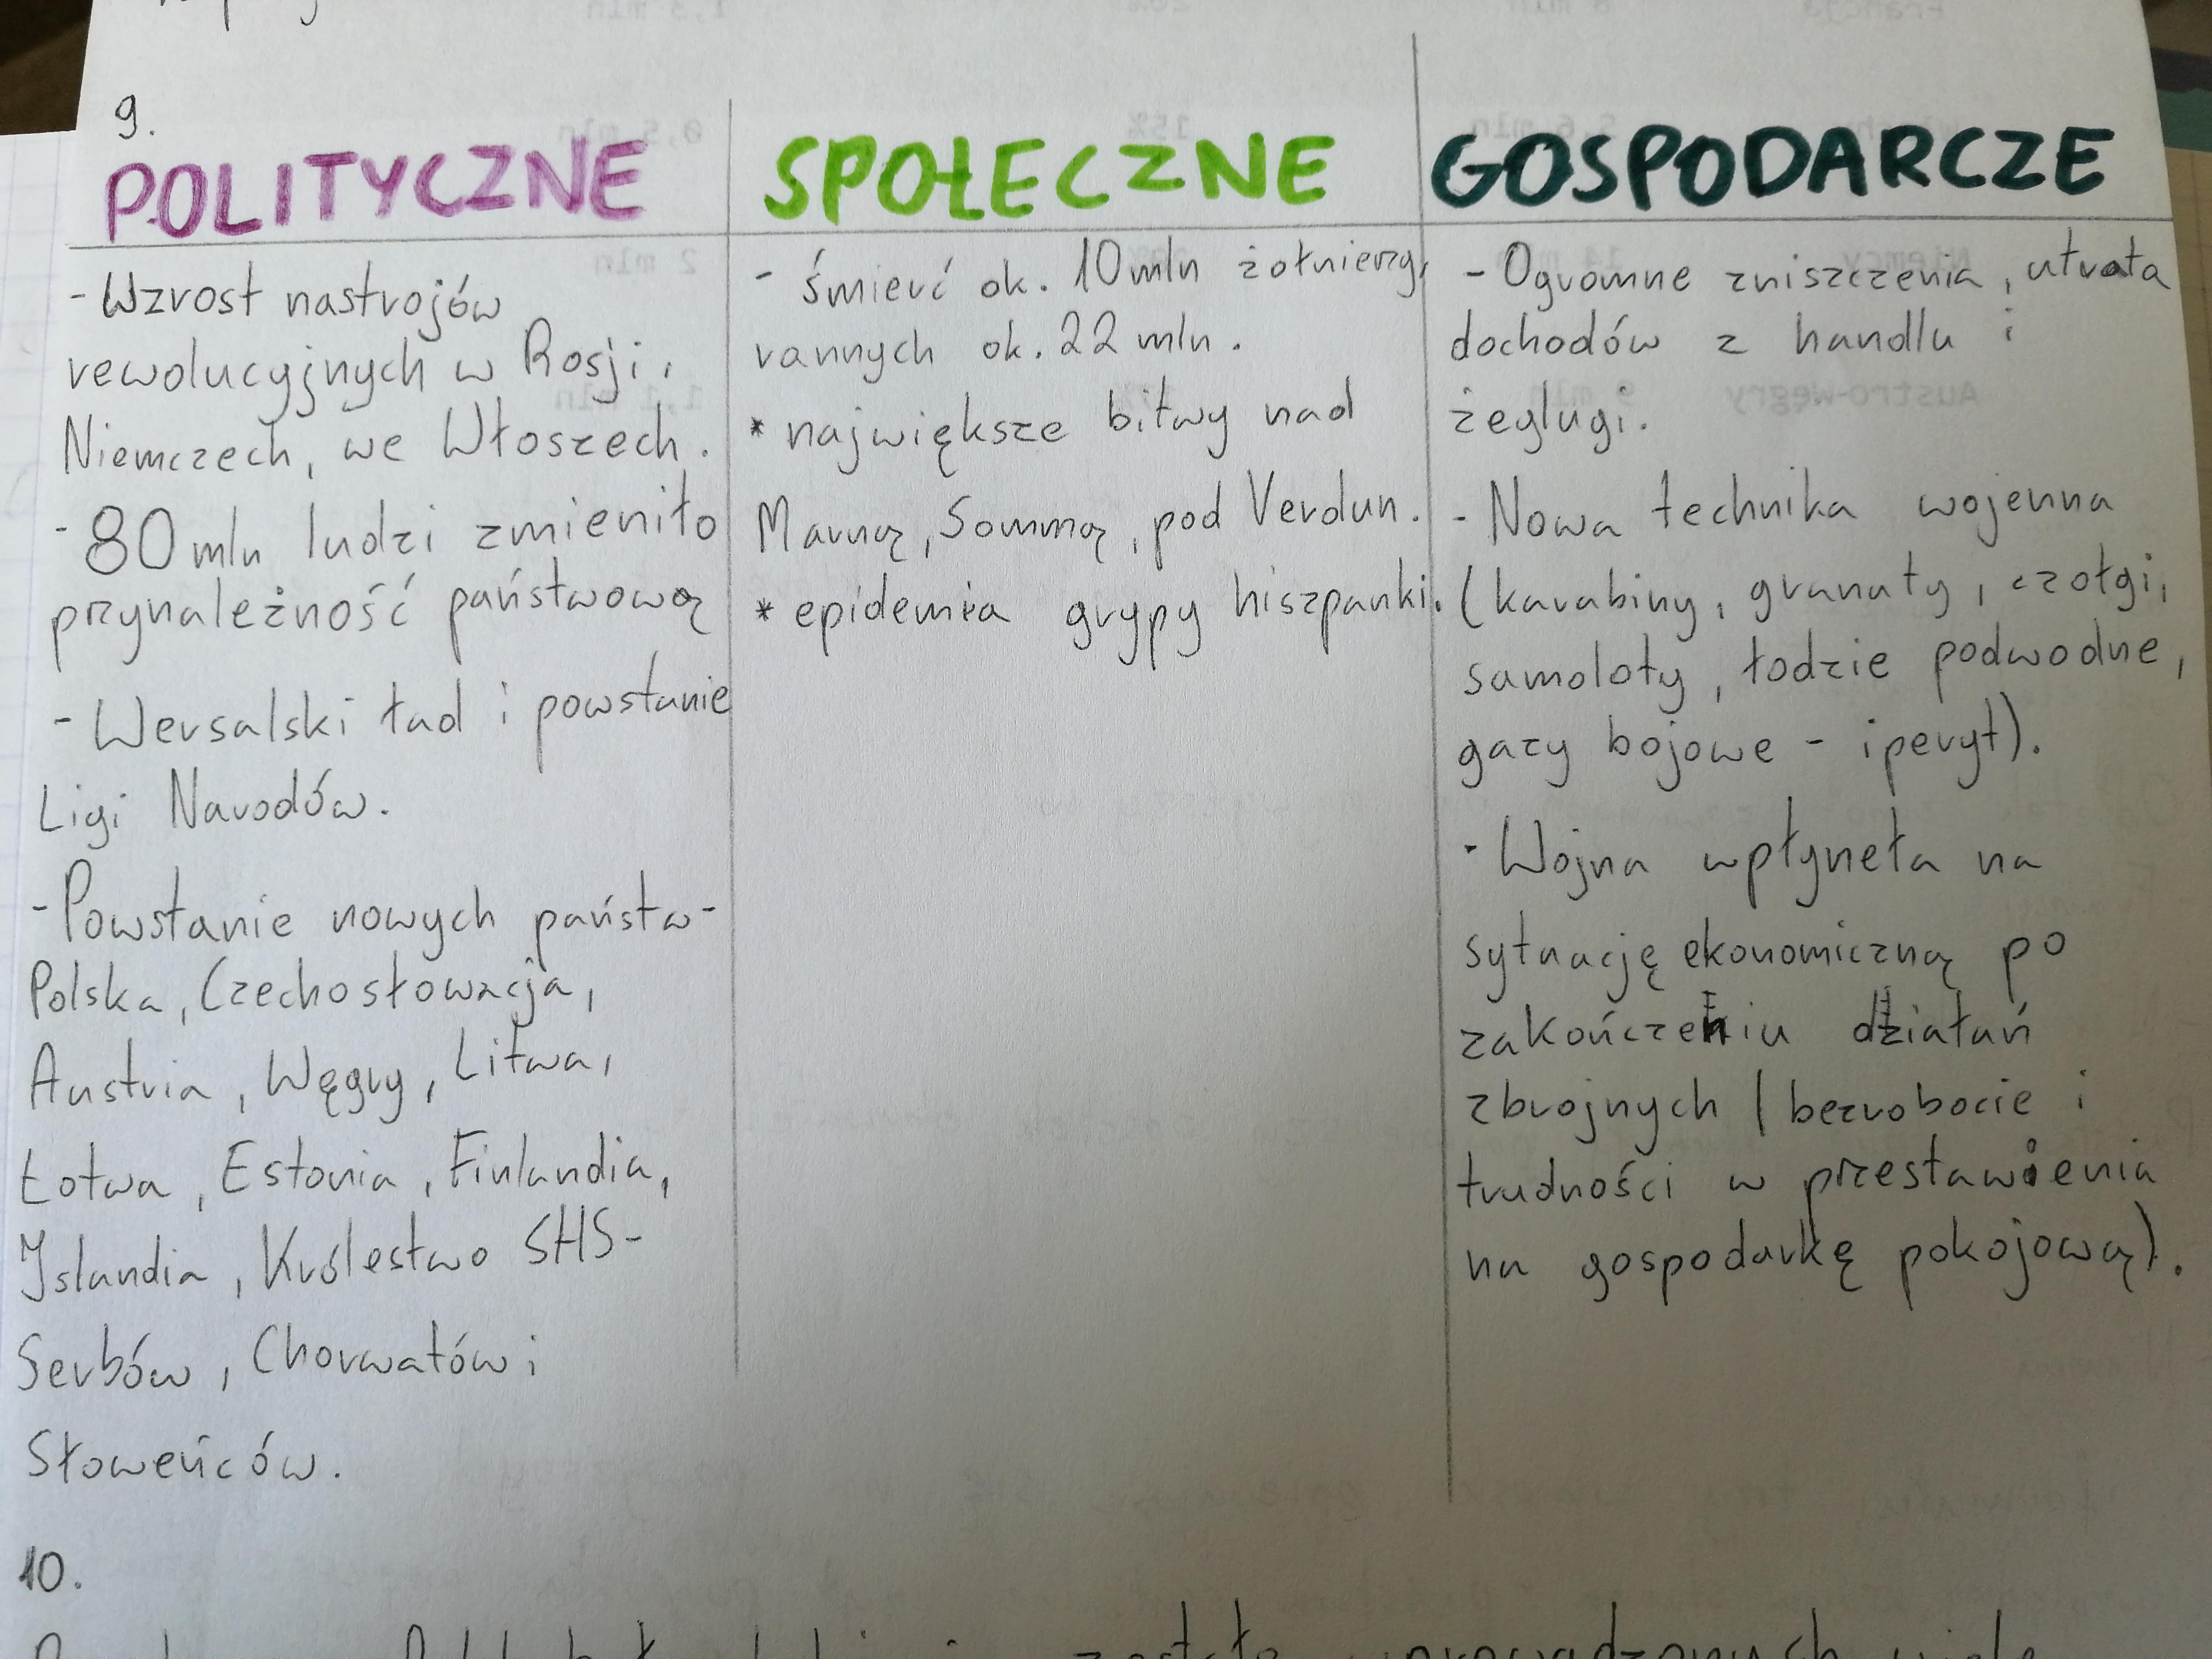 9.
POLITYCZNE
- Wzrost nastrojów
rewolucyjnych w Rosji,
Niemczech, we Włoszech.
- 80 mln ludzi zmieniło
przynależność państwową
- Wersalski ład i powstanie
Ligi Narodów.
- Powstanie nowych państw -
Polska, Czechosłowacja,
Austria, Węgry, Litwa,
Łotwa, Estonia, Finlandia,
Islandia, Królestwo SHS -
Serbów, Chorwatów i
Słoweńców.
SPOŁECZNE
- śmierć ok. 10 mln żołnierzy,
rannych ok. 22 mln.
* największe bitwy nad
Marną, Sommą, pod Verdun.
* epidemia grypy hiszpanki.
GOSPODARCZE
- Ogromne zniszczenia, utrata
dochodów z handlu i
żeglugi.
- Nowa technika wojenna
(karabiny, granaty, czołgi,
samoloty, łodzie podwodne,
gazy bojowe - iperyt).
- Wojna wpłyneła na
sytuację ekonomiczną po
zakończeniu działań
zbrojnych (bezrobocie i
trudności w przestawienia
na gospodarkę pokojową).
10.